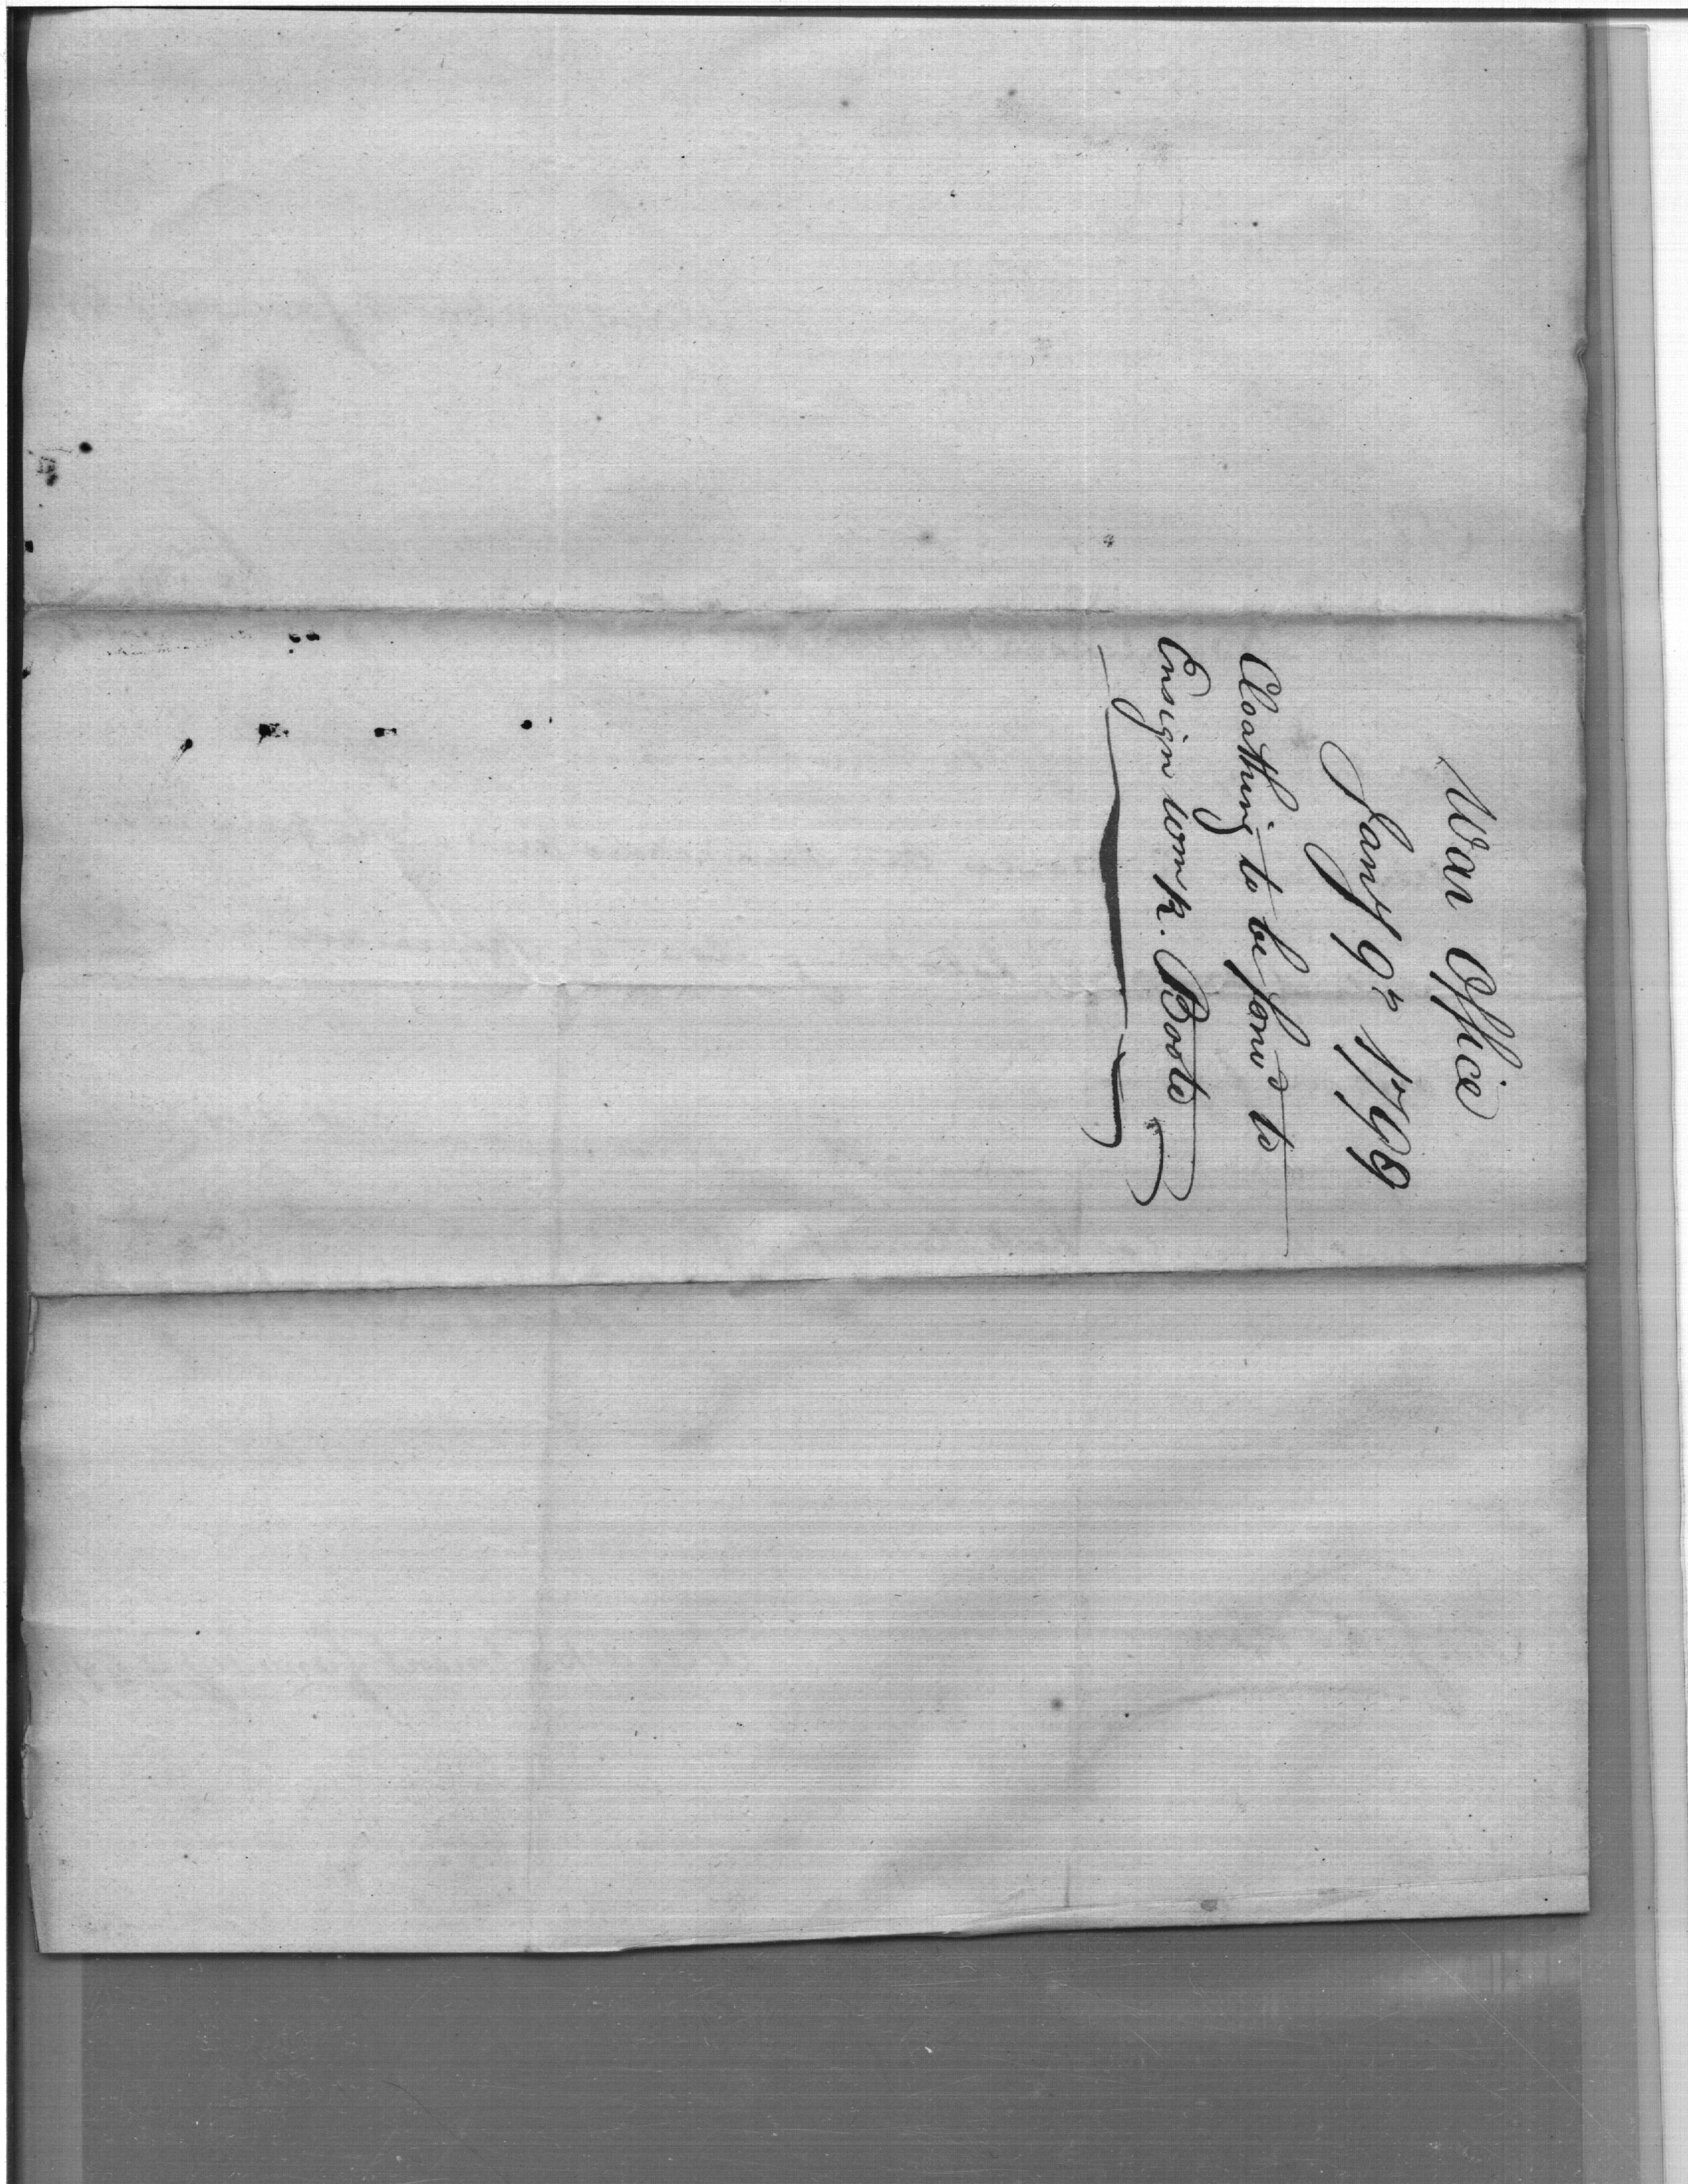 War Office
Jany 9th 1799
Cloathing to be forwd to
Ensign Wm R. Boote